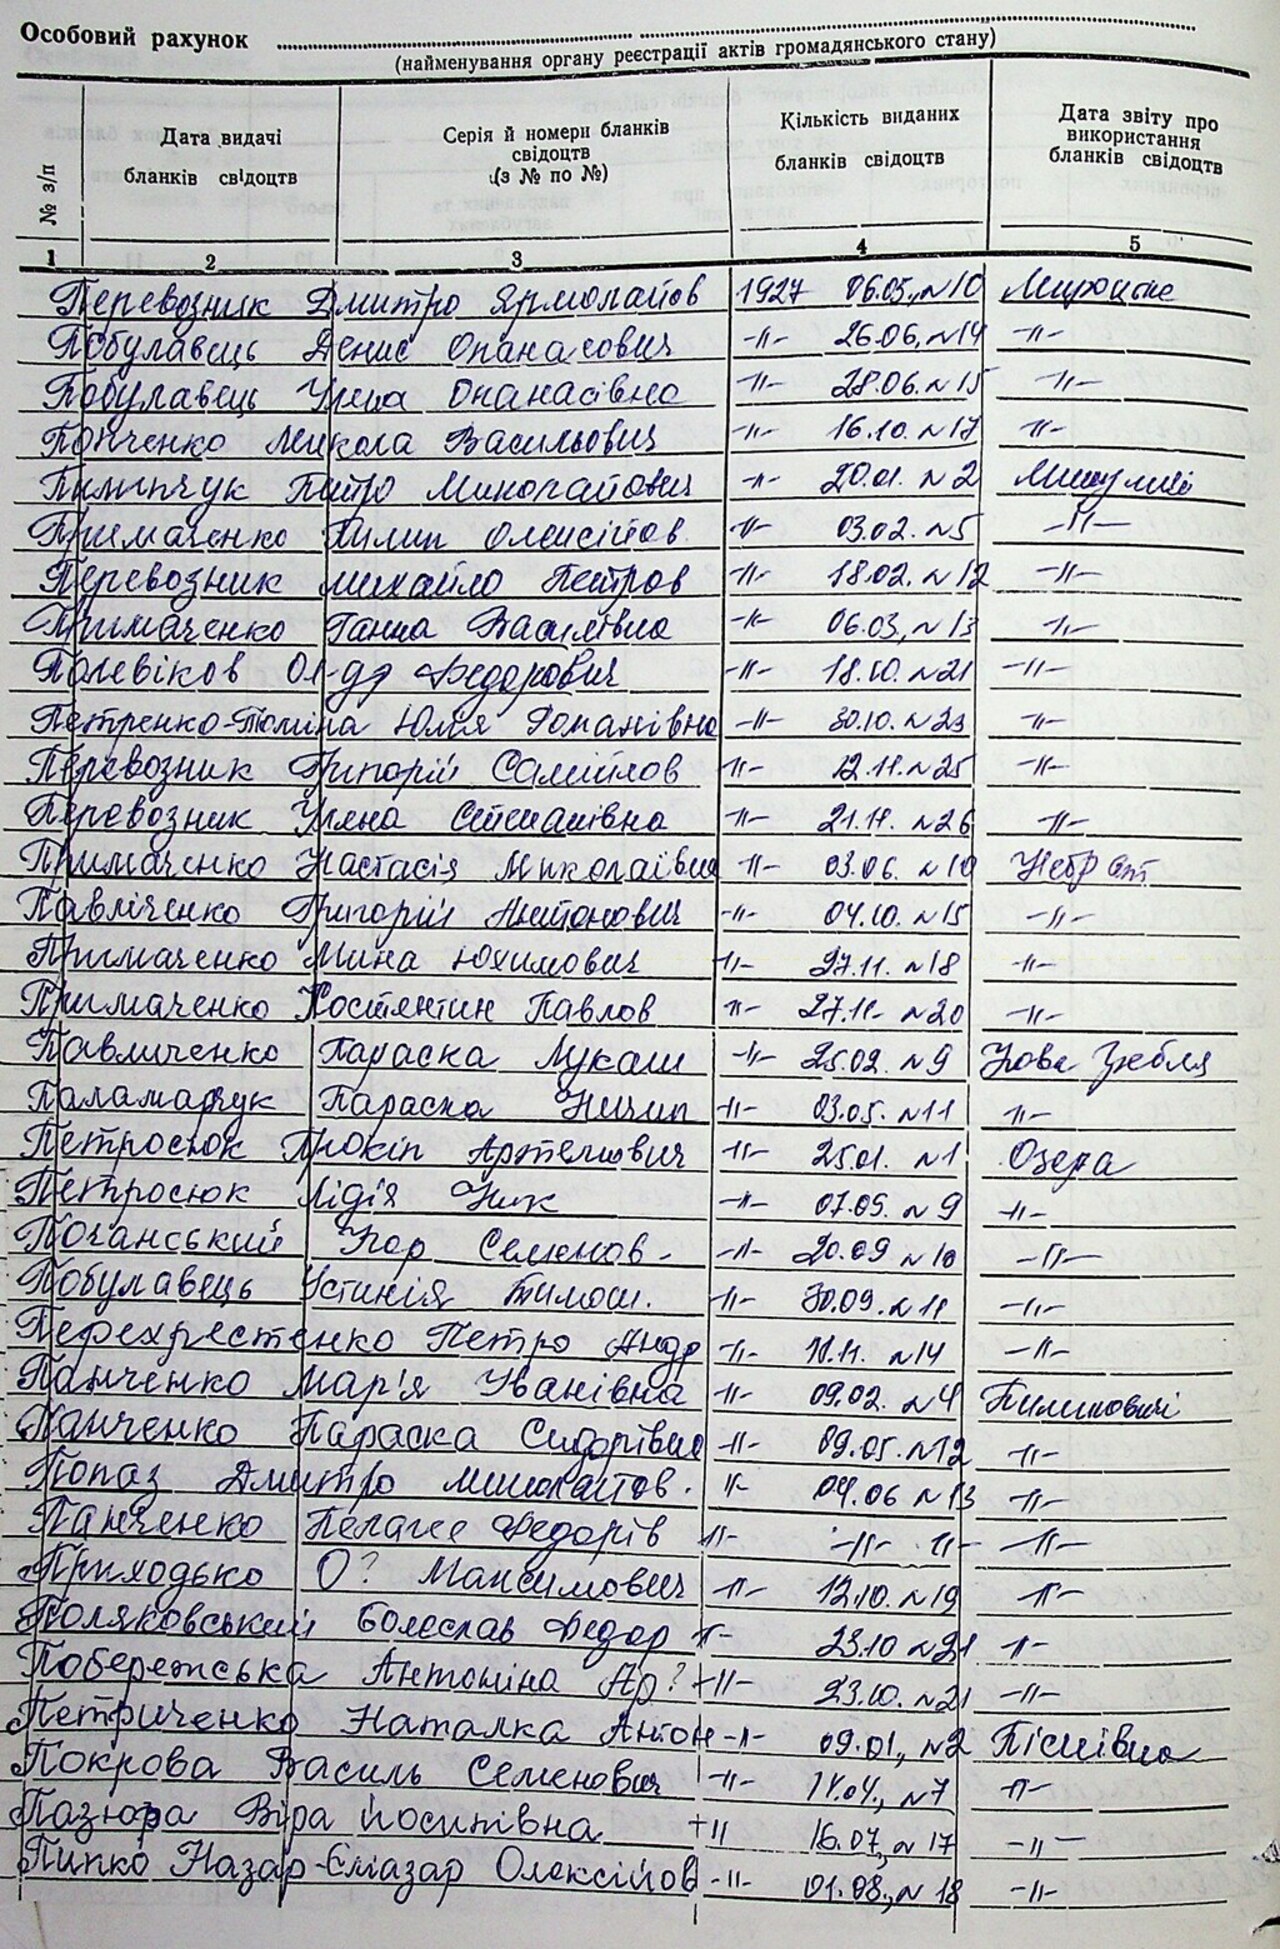 Особовий рахунок
(найменування органу реєстрації актів громадянського стану)
№ з/п
Дата видачі бланків свідоцтв
Серія й номери бланків свідоцтв (з № по №)
Кількість виданих бланків свідоцтв
Дата звіту про використання бланків свідоцтв
1 2 3 4 5
Перевозник Дмитро Ярмолайов 1927 06.05., №10
Побулавець Денис Опанасович -"- 26.06, №14 -"-
Побулавець Уляна Опанасівна -"- 28.06. №15 -"-
Панченко Микола Васильович -"- 16.10. №17 -"-
Пилипчук Петро Миколайович -"- 20.01. №2 Микуличі
Примаченко Пилип Олексійов. -"- 03.02. №5 -"-
Перевозник Михайло Петров -"- 18.02. №12 -"-
Примаченко Ганна Василівна -"- 06.03., №13 -"-
Полевіков Ол-др Федорович -"- 18.10. №21 -"-
Петренко-Томіна Юлія Романівна -"- 30.10. №23 -"-
Перевозник Григорій Самійлов -"- 12.11. №25 -"-
Перевозник Уляна Степанівна -"- 21.11. №26 -"-
Примаченко Настасія Миколаївна -"- 03.06. №10 Небрат
Павліченко Григорій Антонович -"- 04.10. №15 -"-
Примаченко Мина Юхимович -"- 27.11. №18 -"-
Примаченко Костянтин Павлов -"- 27.11- №20 -"-
Павличенко Параска Лукаш -"- 25.02. №9 Нова Гребля
Паламарчук Параска Ничип -"- 03.05. №11 -"-
Петросюк Прокіп Артемович -"- 25.01. №1 Озера
Петросюк Лідія Ник -"- 07.05. №9 -"-
Поганський Ігор Семенов. -"- 20.09 №10 -"-
Побулавець Устинія Тимош. -"- 30.09. №11 -"-
Перехрестенко Петро Андр -"- 11.11. №14 -"-
Панченко Мар'я Іванівна -"- 09.02. №4 Пилиповичі
Панченко Параска Сидорівна -"- 09.05. №12 -"-
Попаз Дмитро Миколайов. -"- 04.06 №13 -"-
Панченко Пелагея Федорів -"- -"- -"- -"-
Приходько О? Максимович -"- 12.10. №19 -"-
Поляковський Болеслав Федор -"- 23.10 №21 -"-
Побережська Антоніна Ар? + -"- 23.10. №21 -"-
Петриченко Наталка Антон -"- 09.01., №2 Пісківка
Покрова Василь Семенович -"- 14.04., №7 -"-
Пазюра Віра Йосипівна + " 16.07., №17 -"-
Пипко Назар-Єліазар Олексійов -"- 01.08., №18 -"-